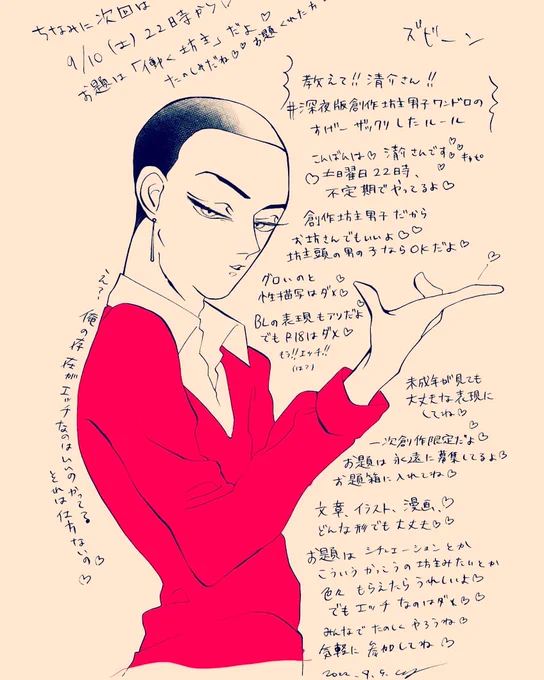 ちなみに次回は
9/10(土)22時から
お題は「働く坊主」だよ♡
たのしみだね♡お題くれた方
ズビーン
教えて!!清介さん!!
#深夜版創作坊主男子ワンドロの
すげーザックリしたルール
こんばんは♡清介さんです♡
♡土曜日22時、
不定期でやってるよ♡
創作坊主男子だから
お坊さんでもいいよ♡♡
坊主頭の男の子ならOKだよ♡
グロいのと
性描写はダメ♡
BLの表現もアリだよ
でもR18はダメ♡
もう!!エッチ!!
(は?)
未成年が見ても
大丈夫な表現に
してね♡
一次創作限定だよ♡
お題は永遠に募集してるよ♡
お題箱に入れてね♡
文章、イラスト、漫画、♡
どんな形でも大丈夫♡♡
お題はシチュエーションとか
こういうかっこうの坊主みたいとか
色々もらえたらうれしいよ♡
でもエッチなのはダメ♡♡
みんなでたのしくやろうね♡
気軽に参加してね♡
2022.9.5.
え?
俺の存在がエッチなのはいいのかって?
それは仕方ないの♡♡